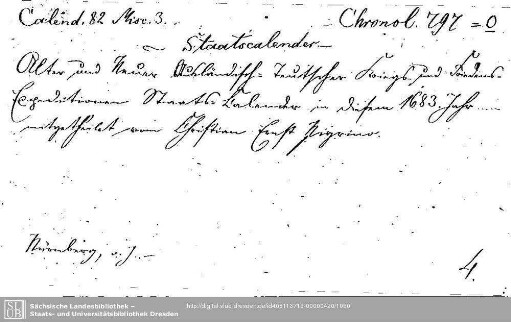 Calend. 82 Misc. 3. Chronol. 797 = 0
Staatscalender
Alter und Neuer Ausländisch-Teutscher Kriegs- und Friedens-
Expeditionen Staats-Calender in diesem 1683. Jahr
mitgetheilt von Christian Ernst
Nürnberg, o. J.
4.
SLUB
Sächsische Landesbibliothek –
Staats- und Universitätsbibliothek Dresden